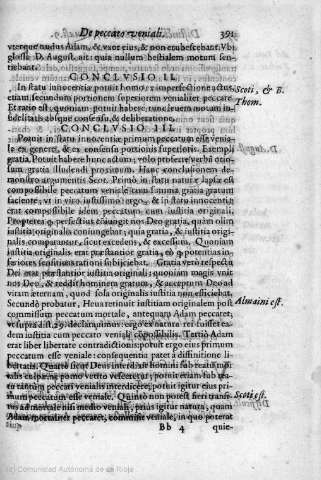 De peccato veniali. 391
vterque nudus Adam, & vxor eius, & non erubescebat. Vbi
glossa D. August. ait: quia nullum bestialem motum sen-
tiebant.
CONCLVSIO II.
In statu innocentiæ potuit homo, ex imperfectione actus
etiam secundum portionem superiorem venialiter peccare.
Et ratio est: quoniam potuit habere
delitatis absque consensu, & deliberatione.
Scoti, & B.
Thom.
CONCLVSIO III.
Potuit in statu innocentiæ primum peccatum esse venia-
le ex genere, & ex consensu portionis superioris. Exempli
gratia, Potuit habere hunc actum: volo proferre verbū otio-
sum gratia illudendi proximum. Hanc conclusionem de-
monstro argumentis Scot. Primò in statu naturæ lapsæ est
compossibile peccatum veniale cum summa gratia gratum
faciente, vt in viro iustissimo: ergo, & in statu innocentiæ
erat compossibile idem peccatum cum iustitia originali.
Propterea q, perfectius coniungit nos Deo gratia, quàm olim
iustitia originalis coniungebat: quia gratia, & iustitia origi-
nalis comparantur, sicut excedens, & excessum. Quoniam
iustitia originalis erat præstantior gratia, eò q, potentias in-
feriores rationi subijciebat. Gratia verò respectu
Dei erat præstantior iustitia originali: quoniam magis vnit
nos Deo, & reddit hominem gratum, & acceptum Deo ad
vitam æternam, quod sola originalis iustitia non efficiebat.
Secundò probatur, Heua retinuit iustitiam originalem post
commissum peccatum mortale, antequam Adam peccaret,
Almaini est.
vt supra dist. 29. declarauimus: ergo ex natura rei fuisset ea-
dem iustitia cum peccato veniali compossibilis. Tertiò Adam
erat liber libertate contradictionis: potuit ergo eius primum
peccatum esse veniale: consequentia patet à diffinitione li-
bertatis. Quartò sicut Deus interdixit homini sub reatu mor-
talis culpæ ne pomo vetito vesceretur; potuit etiam sub rea-
tu tantùm peccati venialis interdicere, potuit igitur eius pri-
mum peccatum esse veniale. Quintò non potest fieri transi-
Scoti est.
tus ad mortale nisi medio veniali, prius igitur natura, quàm
Adam mortaliter peccaret, commisit veniale, in quo poterat
Bb 4 quie-
(c) Comunidad Autónoma de La Rioja